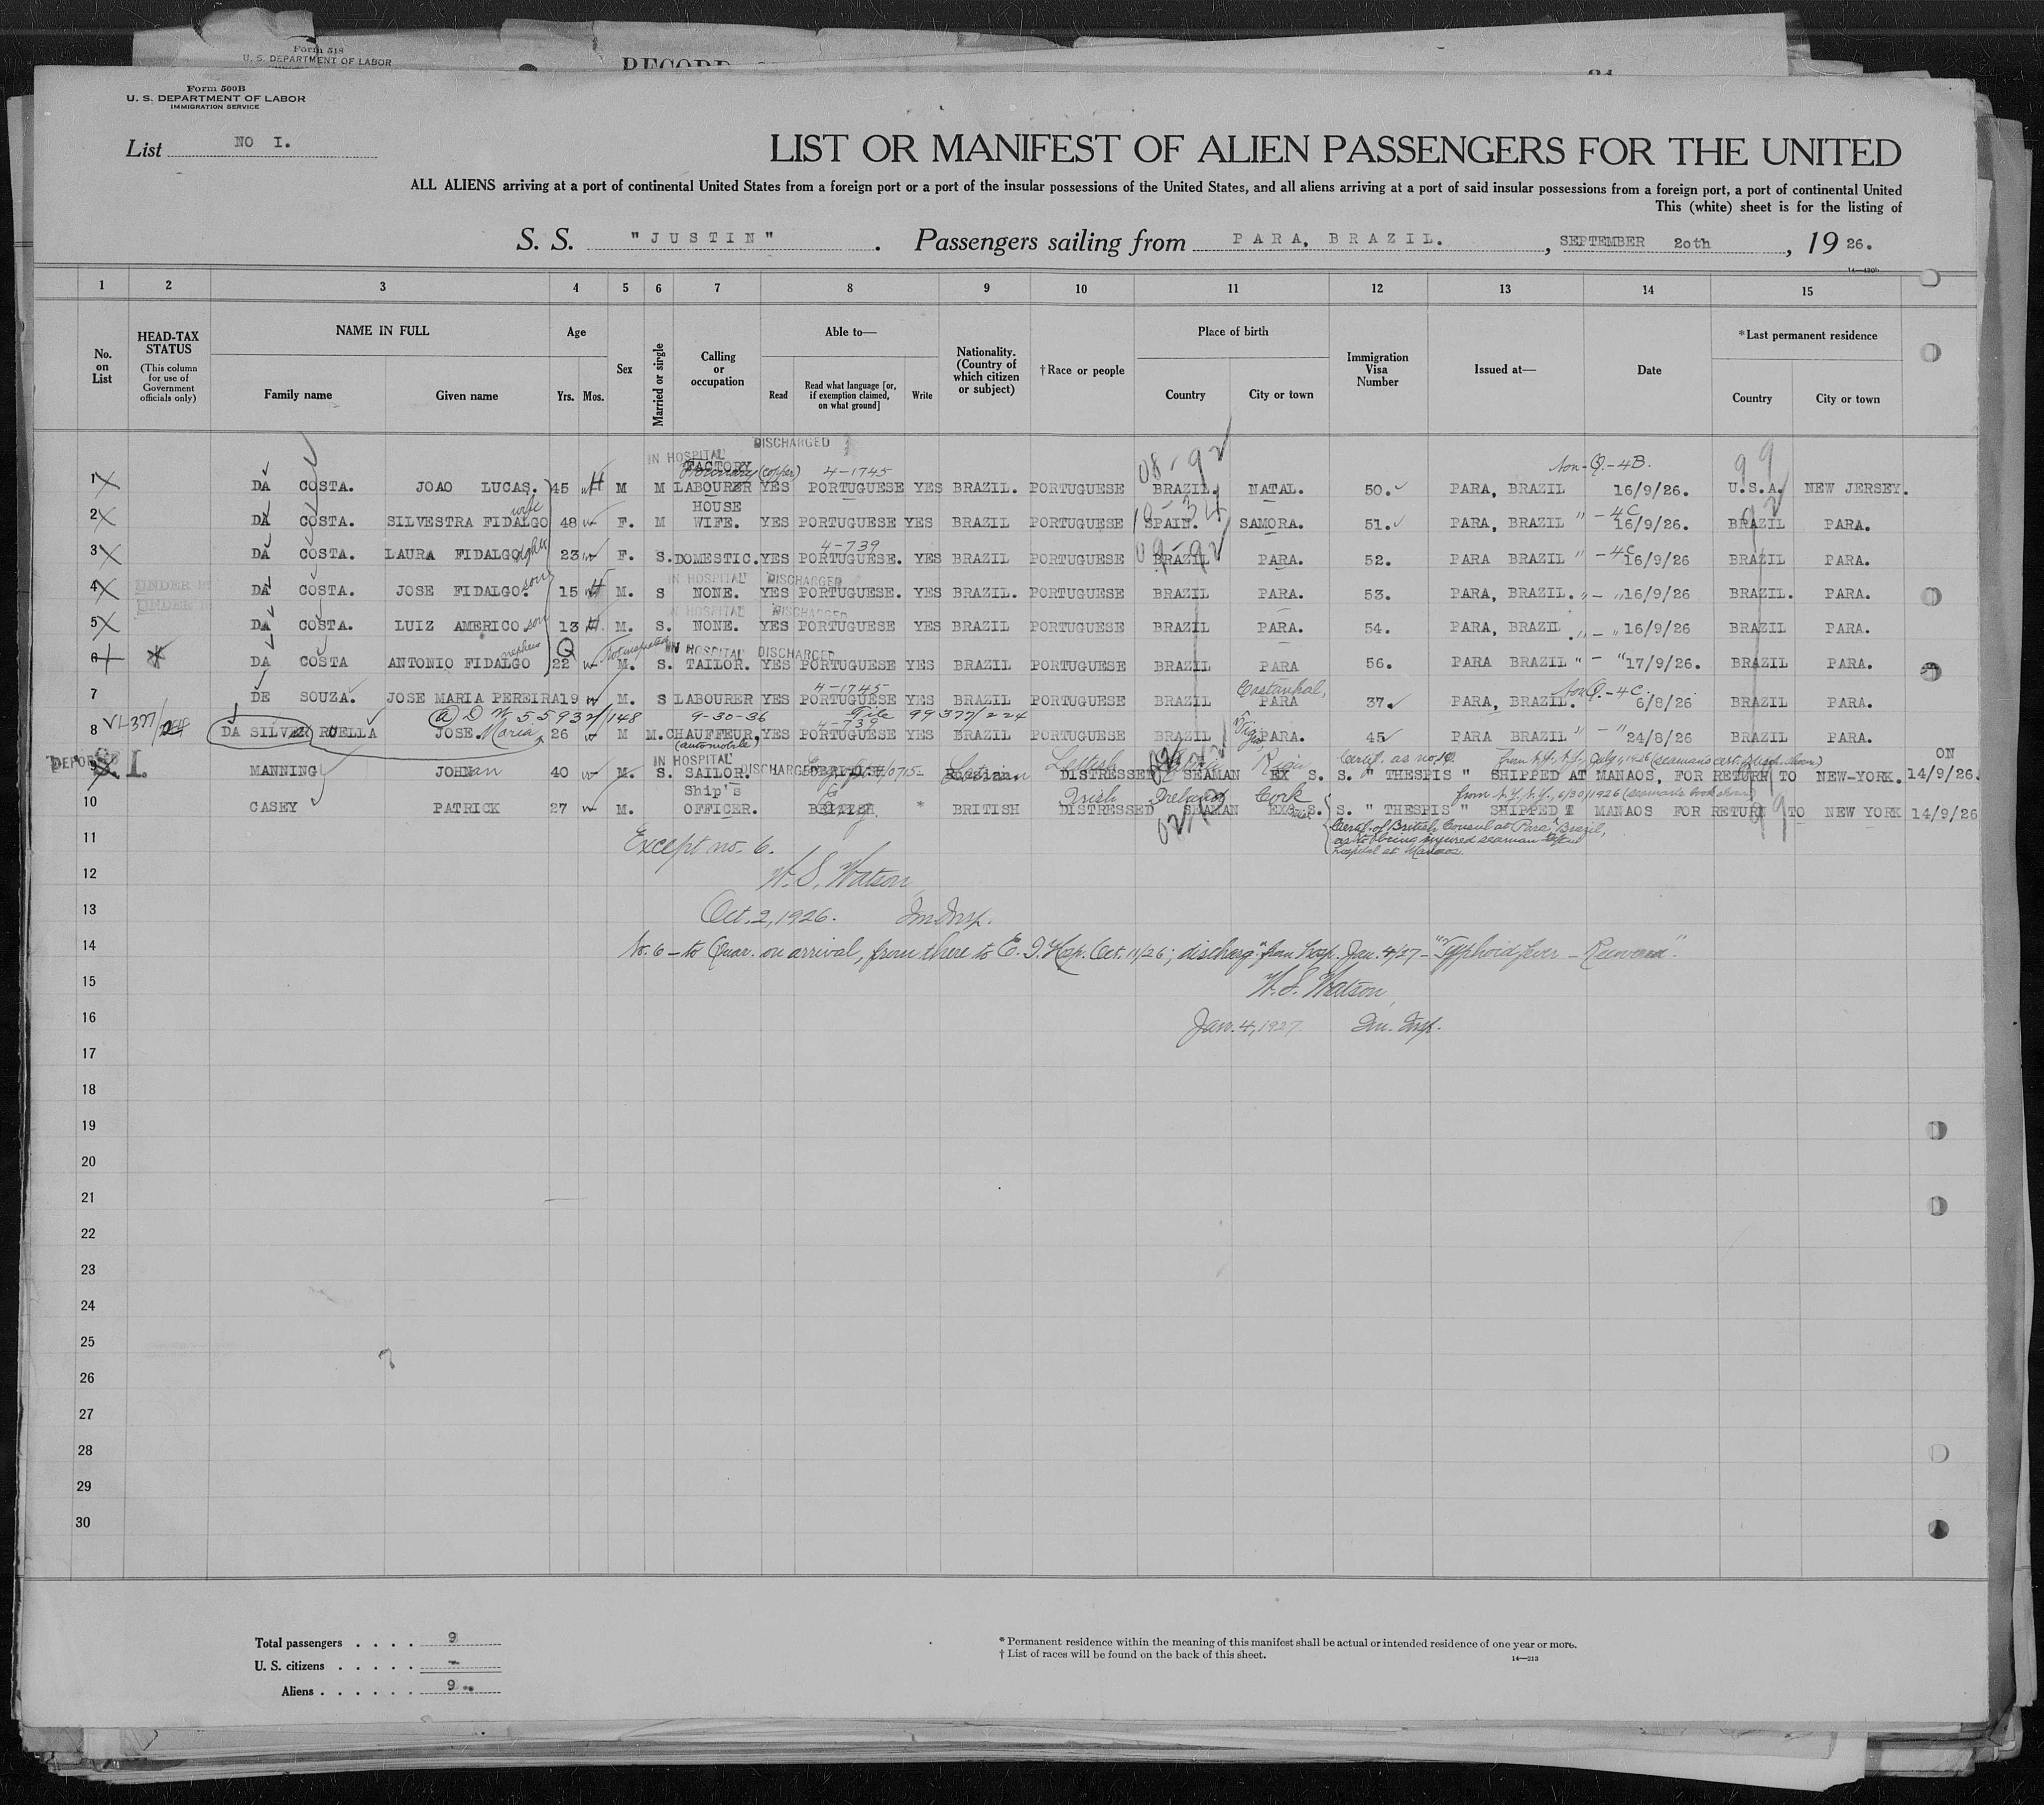 Form 518
U. S. DEPARTMENT OF LABOR
RECORD
Form 500B
U. S. DEPARTMENT OF LABOR
IMMIGRATION SERVICE
List NO I.
LIST OR MANIFEST OF ALIEN PASSENGERS FOR THE UNITED
ALL ALIENS arriving at a port of continental United States from a foreign port or a port of the insular possessions of the United States, and all aliens arriving at a port of said insular possessions from a foreign port, a port of continental United
This (white) sheet is for the listing of
S. S. "JUSTIN". Passengers sailing from PARA, BRAZIL., SEPTEMBER 20th, 19 26.
1 2 3 4 5 6 7 8 9 10 11 12 13 14 15
No. on List
HEAD-TAX STATUS
(This column for use of Government officials only)
NAME IN FULL
Family name Given name
Age
Yrs. Mos.
Sex
Married or single
Calling or occupation
Able to—
Read Read what language [or, if exemption claimed, on what ground] Write
Nationality. (Country of which citizen or subject)
†Race or people
Place of birth
Country City or town
Immigration Visa Number
Issued at—
Date
*Last permanent residence
Country City or town
IN HOSPITAL DISCHARGED
FACTORY (copper) 4-1745 08-92 Non-Q.-4B. 99
1 DA COSTA. JOAO LUCAS. 45 M M LABOURER YES PORTUGUESE YES BRAZIL. PORTUGUESE BRAZIL. NATAL. 50. PARA, BRAZIL 16/9/26. U.S.A. NEW JERSEY.
wife HOUSE " -4C
2 DA COSTA. SILVESTRA FIDALGO 48 F. M WIFE. YES PORTUGUESE YES BRAZIL PORTUGUESE SPAIN. SAMORA. 51. PARA, BRAZIL 16/9/26. BRAZIL PARA.
4-739 09-92 " -4C
3 DA COSTA. LAURA FIDALGO 23 F. S. DOMESTIC. YES PORTUGUESE. YES BRAZIL PORTUGUESE BRAZIL PARA. 52. PARA BRAZIL 16/9/26 BRAZIL PARA.
IN HOSPITAL DISCHARGED
4 DA COSTA. JOSE FIDALGO. son 15 M. S NONE. YES PORTUGUESE. YES BRAZIL. PORTUGUESE BRAZIL PARA. 53. PARA, BRAZIL. " - " 16/9/26 BRAZIL. PARA.
IN HOSPITAL DISCHARGED
5 DA COSTA. LUIZ AMERICO son 13 M. S. NONE. YES PORTUGUESE YES BRAZIL PORTUGUESE BRAZIL PARA. 54. PARA, BRAZIL " - " 16/9/26 BRAZIL PARA.
nephew Q Not inspected IN HOSPITAL DISCHARGED
6 DA COSTA ANTONIO FIDALGO 22 M. S. TAILOR. YES PORTUGUESE YES BRAZIL PORTUGUESE BRAZIL PARA 56. PARA BRAZIL " - " 17/9/26. BRAZIL PARA.
4-1745 Castanhal, Non Q.-4C.
7 DE SOUZA. JOSE MARIA PEREIRA 19 M. S LABOURER YES PORTUGUESE YES BRAZIL PORTUGUESE BRAZIL PARA 37. PARA, BRAZIL. 6/8/26 BRAZIL PARA.
55932/148 9-30-36 File 99377/224
4-739
8 DA SILVA RUELLA JOSE. Maria 26 M M. CHAUFFEUR, YES PORTUGUESE YES BRAZIL PORTUGUESE BRAZIL Vigia, PARA. 45 PARA BRAZIL " - " 24/8/26 BRAZIL PARA.
(automobile)
DEPORTED S.I. IN HOSPITAL DISCHARGED Lettish Riga Certif. as no. 10. ON
9 MANNING JOHN 40 M. S. SAILOR. DISTRESSED SEAMAN EX S. S. " THESPIS " SHIPPED AT MANAOS, FOR RETURN TO NEW-YORK. 14/9/26.
Ship's Irish Ireland Cork from N.Y., N.Y., 6/30/1926 (seaman's book shown)
10 CASEY PATRICK 27 M. OFFICER. * BRITISH DISTRESSED SEAMAN EX S. S. " THESPIS " SHIPPED MANAOS FOR RETURN TO NEW YORK 14/9/26
Certif. of British Consul at Para, Brazil,
as to being injured seaman
hospital at Manaos.
11 Except no. 6.
12 W. S. Watson
13 Oct. 2, 1926. Im. Insp.
14 No. 6 - to Quar. on arrival, from there to E. I. Hosp. Oct. 11/26; discharg'd from hosp. Jan. 4/27 - "Typhoid fever - Recovered".
15 W. S. Watson
16 Jan. 4, 1927. Im. Insp.
17
18
19
20
21
22
23
24
25
26
27
28
29
30
Total passengers . . . . 9
U. S. citizens . . . . . -
Aliens . . . . . . 9
* Permanent residence within the meaning of this manifest shall be actual or intended residence of one year or more.
† List of races will be found on the back of this sheet.
14—213